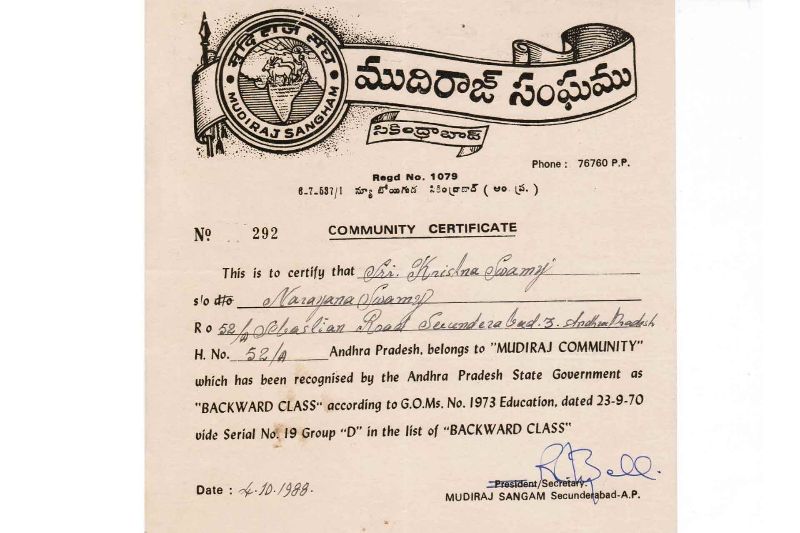 मुदिराज संघ
MUDIRAJ SANGHAM
ముదిరాజ్ సంఘము
సికింద్రాబాద్
Phone : 76760 P.P.
Regd No. 1079
6-7-537/1 న్యూ బోయిగుడ సికింద్రాబాద్ ( ఆం. ప్ర. )
No 292 COMMUNITY CERTIFICATE
This is to certify that Sri. Krishna Swamy
s/o d/o Narayana Swamy
R o 52/A Sebastian Road Secunderabad. 3. Andhra Pradesh
H. No. 52/A Andhra Pradesh, belongs to "MUDIRAJ COMMUNITY"
which has been recognised by the Andhra Pradesh State Government as
"BACKWARD CLASS" according to G.O.Ms. No. 1973 Education, dated 23-9-70
vide Serial No. 19 Group "D" in the list of "BACKWARD CLASS"
President/Secretary.
Date : 4.10.1988.
MUDIRAJ SANGAM Secunderabad-A.P.